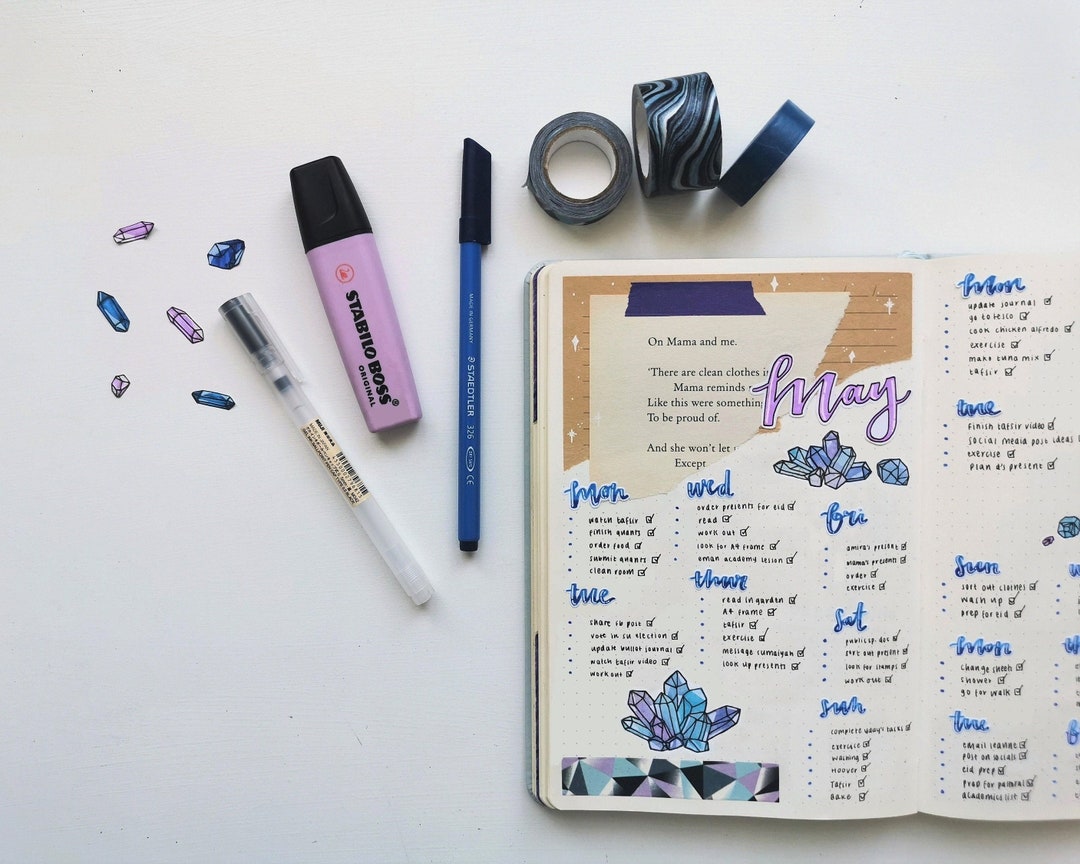 STABILO BOSS
ORIGINAL
MADE IN GERMANY
STAEDTLER 326
CE
On Mama and me.
'There are clean clothes i
Mama reminds
Like this were somethin
To be proud of.
And she won't let
Except
May
mon
watch tafsir
finish quants
order food
submit quants
clean room
tue
share fb post
vote in su election
update bullet journal
watch tafsir video
work out
wed
order presents for eid
read
work out
look for A4 frame
eman academy lesson
thur
read in garden
A4 frame
tafsir
exercise
message sumaiyah
look up presents
fri
amira's present
mama's presents
order
exercise
sat
public sp. doc
sort out present
look for stamps
work out
sun
complete uday's tasks
exercise
washing
Hoover
Tafsir
Bake
mon
update journal
go to tesco
cook chicken alfredo
exercise
make tuna mix
tafsir
tue
finish tafsir video
social media post ideas
exercise
plan d's present
sun
sort out clothes
wash up
prep for eid
mon
change sheets
shower
go for walk
tue
email leanne
post on socials
eid prep
prep for
academics list